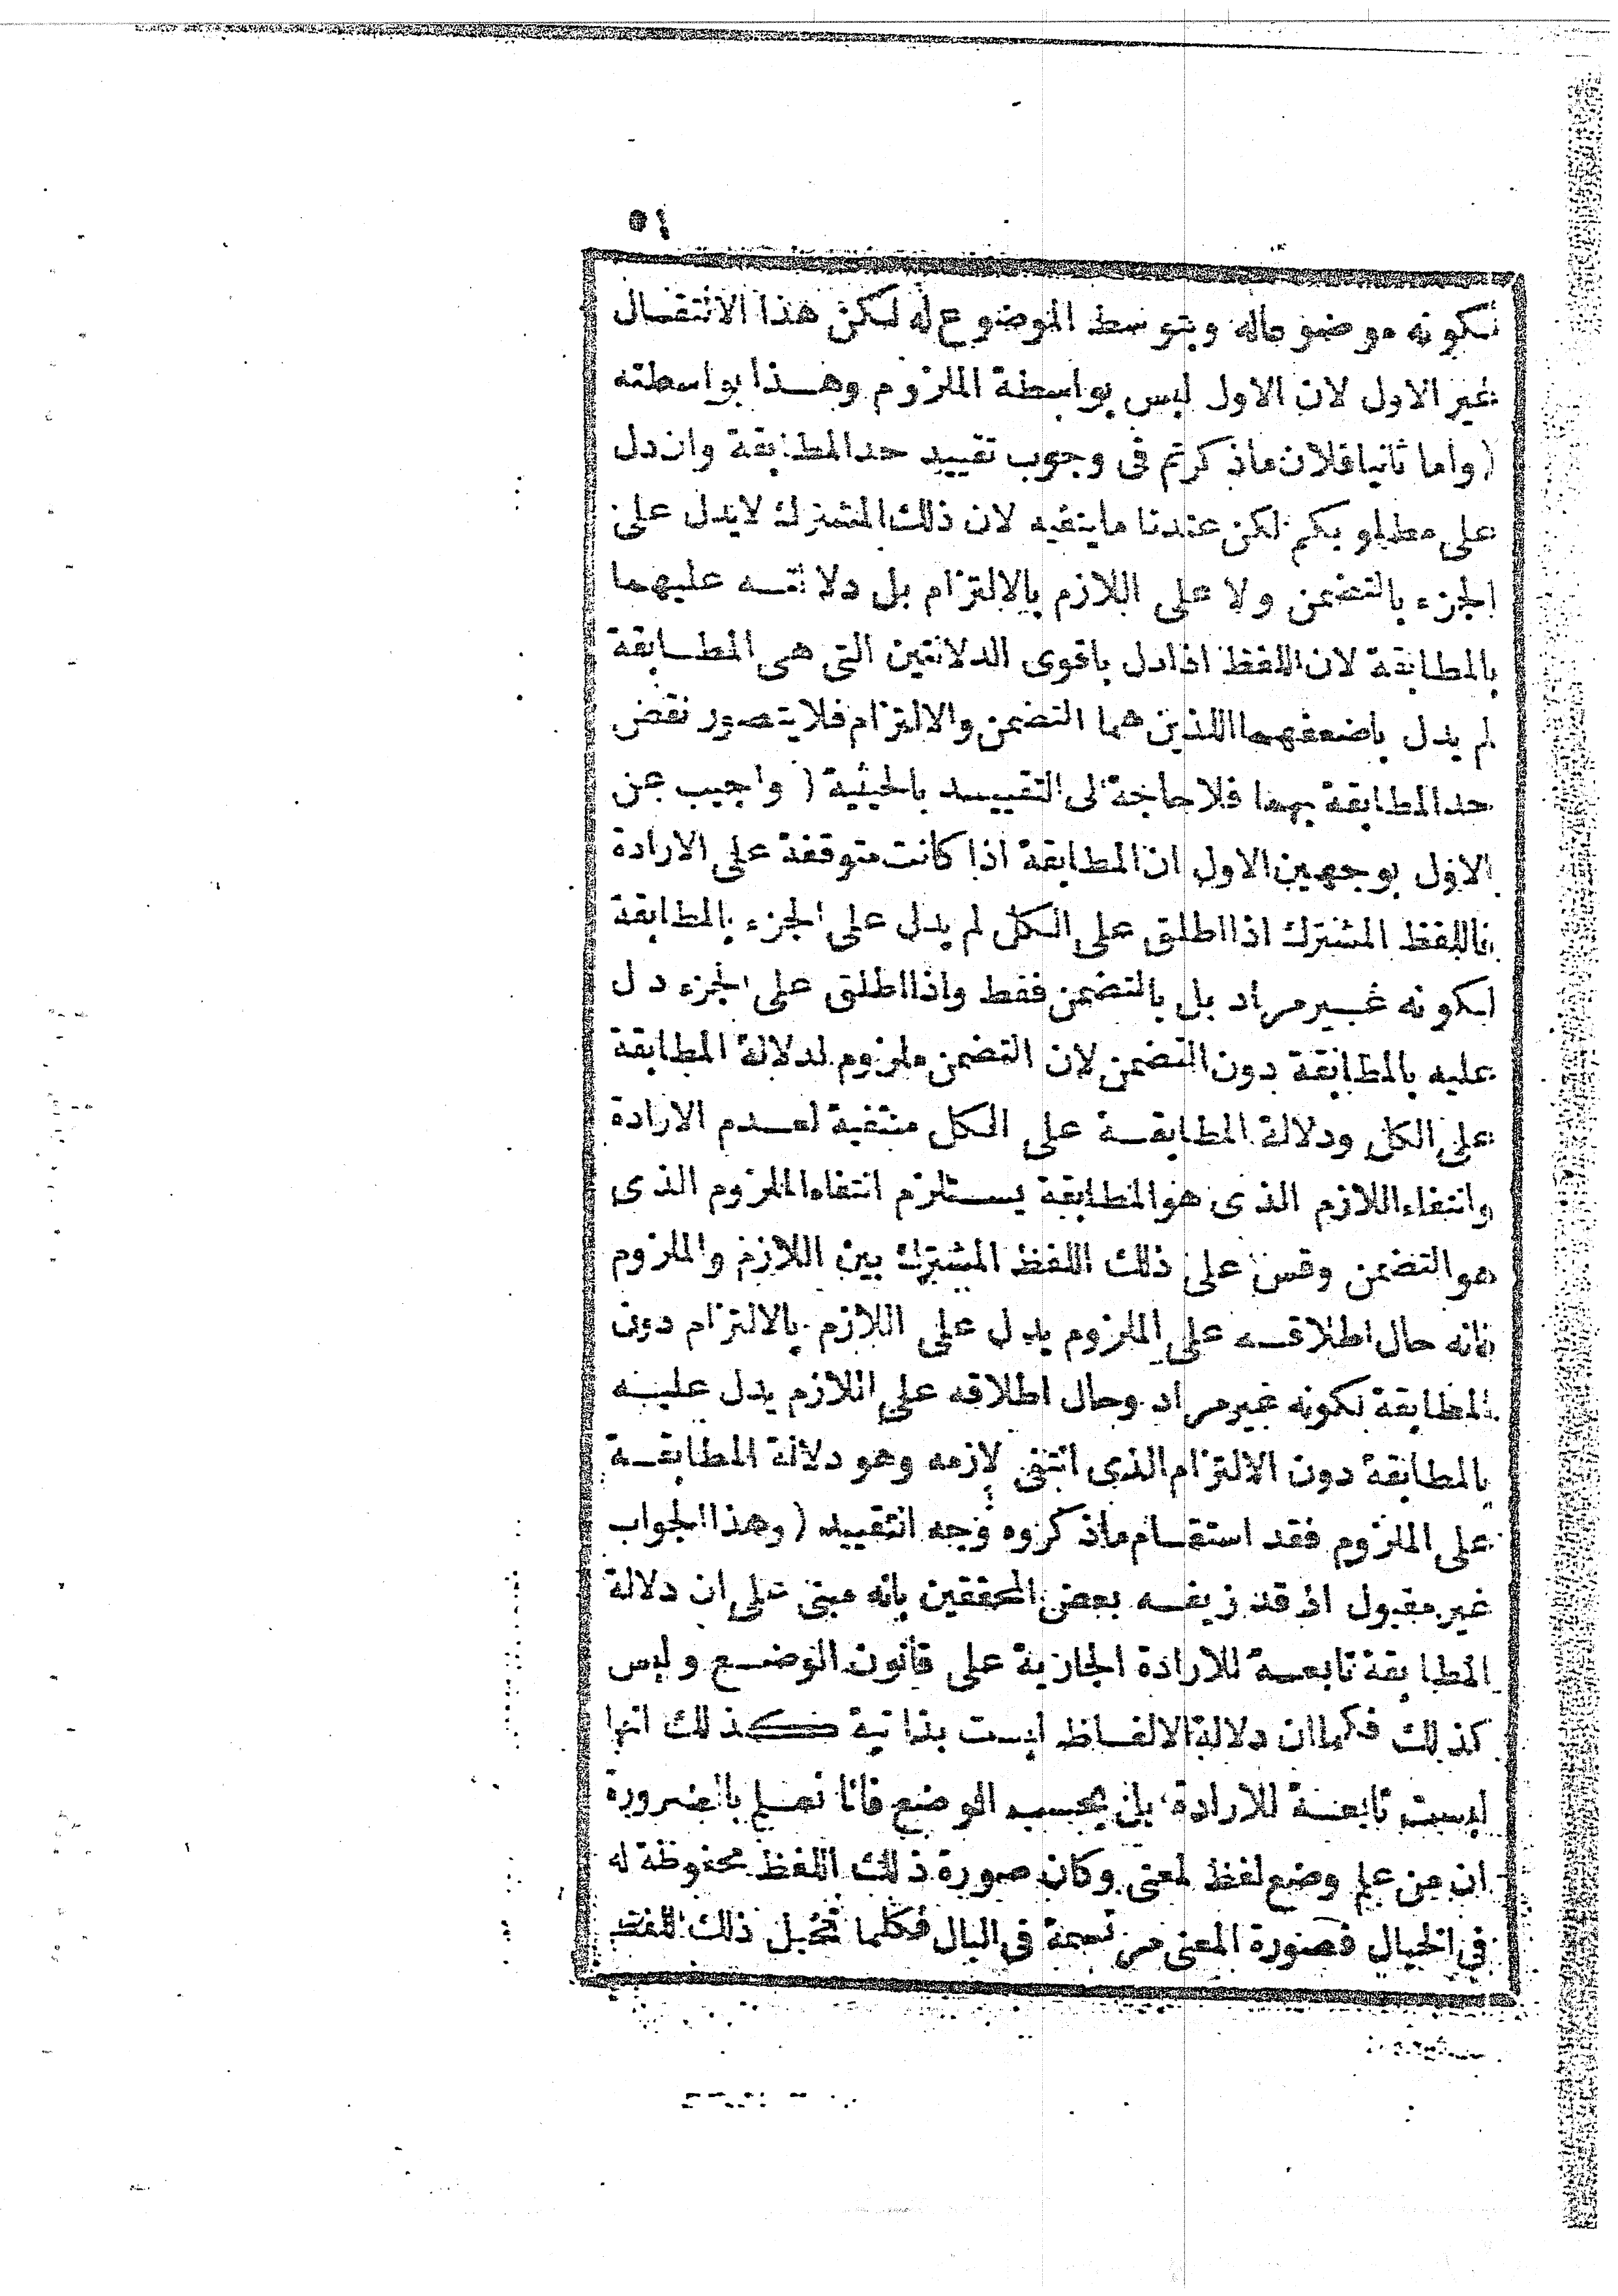 ٥١
لكونه موضوعاله وبتوسط الموضوع له لكن هذا الانتقال
غير الاول لان الاول ليس بواسطة الملزوم وهذا بواسطته
(واما ثانيا فلان ماذكرتم فى وجوب تقييد حد المطابقة وان دل
على مطلوبكم لكن عندنا ما ينفيه لان ذلك المشترك لايدل على
الجزء بالتضمن ولا على اللازم بالالتزام بل دلالته عليهما
بالمطابقة لان اللفظ اذا دل باقوى الدلالتين التى هى المطابقة
لم يدل باضعفهما اللذين هما التضمن والالتزام فلا يتصور نقض
حد المطابقة بهما فلا حاجة الى التقييد بالحيثية (واجيب عن
الاول بوجهين الاول ان المطابقة اذا كانت متوقفة على الارادة
فاللفظ المشترك اذا اطلق على الكل لم يدل على الجزء بالمطابقة
لكونه غير مراد بل بالتضمن فقط واذا اطلق على الجزء دل
عليه بالمطابقة دون التضمن لان التضمن ملزوم لدلالة المطابقة
على الكل ودلالة المطابقة على الكل منتفية لعدم الارادة
وانتفاء اللازم الذى هو المطابقة يستلزم انتفاء الملزوم الذى
هو التضمن وقس على ذلك اللفظ المشترك بين اللازم والملزوم
فانه حال اطلاقه على الملزوم يدل على اللازم بالالتزام دون
المطابقة لكونه غير مراد وحال اطلاقه على اللازم يدل عليه
بالمطابقة دون الالتزام الذى انتفى لازمه وهو دلالة المطابقة
على الملزوم فقد استقام ماذكروه وجه التقييد (وهذا الجواب
غير مقبول اذ قد زيفه بعض المحققين بانه مبنى على ان دلالة
المطابقة تابعة للارادة الجارية على قانون الوضع وليس
كذلك فكما ان دلالة الالفاظ ليست بذاتية كذلك انها
ليست تابعة للارادة بل بحسب الوضع فانا نعلم بالضرورة
ان من علم وضع لفظ لمعنى وكان صورة ذلك اللفظ محفوظة له
فى الخيال فصورة المعنى مرتسمة فى البال فكلما تخيل ذلك اللفظ